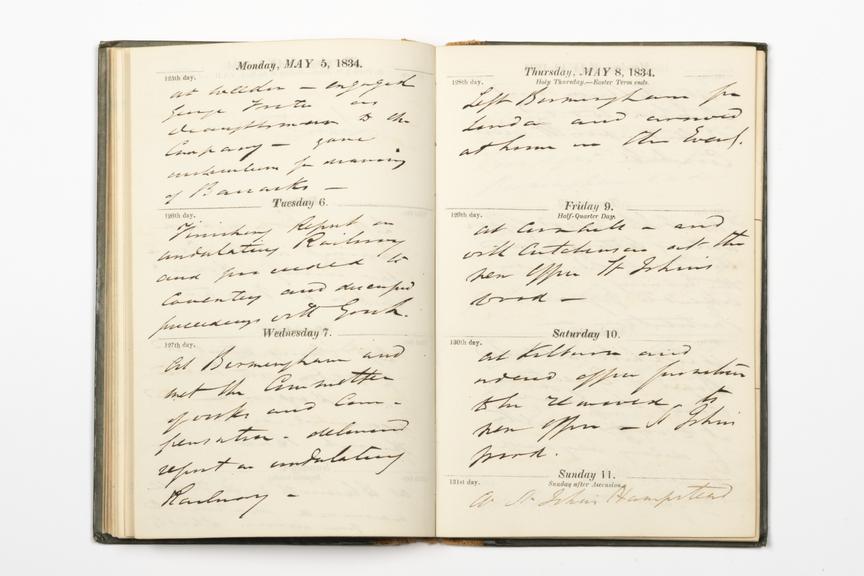 Monday, MAY 5, 1834.
125th day.
at Weedon – engaged
George
draughtsman to the
Company – gave
instructions for drawing
of Barracks –
Tuesday 6.
126th day.
Finishing Report on
undulating Railway
and proceeded to
Coventry and
proceedings with
Wednesday 7.
127th day.
At Birmingham and
met the Committee
of works and Com-
pensation – delivered
report on undulating
Railway –
Thursday, MAY 8, 1834.
128th day.
Holy Thursday.—Easter Term ends.
Left Birmingham for
London and arrived
at home in the Eveng.
Friday 9.
129th day.
Half-Quarter Day.
at Cornhill – and
with Hutchinson at the
new office St Johns
wood –
Saturday 10.
130th day.
at Kilburn and
ordered office furniture
to be removed to
new office – St Johns
wood.
Sunday 11.
131st day.
Sunday after Ascension.
At St Johns Hampstead